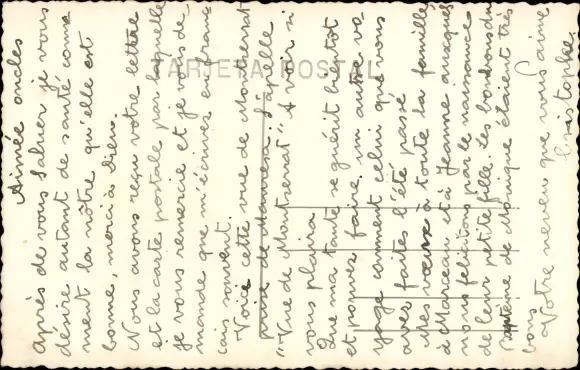 TARJETA POSTAL
Aimée oncles
Après de vous saluer je vous
désire autant de santé comme
ment la nôtre qu'elle est
bonne, merci à Dieu.
Nous avons reçu votre lettre
et la carte postale par laquelle
je vous remercie et je vous de-
mande que m'écrives en fran-
çais souvent.
Voice cette vue de Montserrat
prise de Manresa. S'apelle
"Vue de Montserrat". A voir si
vous plaira.
Que ma tante se guérit bientot
et pouvez faire un autre vo-
yage comment celui que vous
avez faites l'été passé.
Mes vœux à toute la famille,
à Marceau et à Jeanne auxquels
nous félicitons par le naissance
de leur petite fille. Les bonbons du
Baptême de Monique étaient très
bons
Votre neveu que vous aime